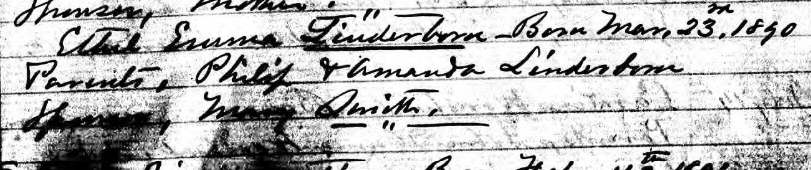 Sponsor, Mother. "
Ethel Emma Linderborn - Born Mar, 23rd, 1890
Parents, Philip & Amanda Linderborn
Sponsor, Mary Smith.
"
Born Feb. th